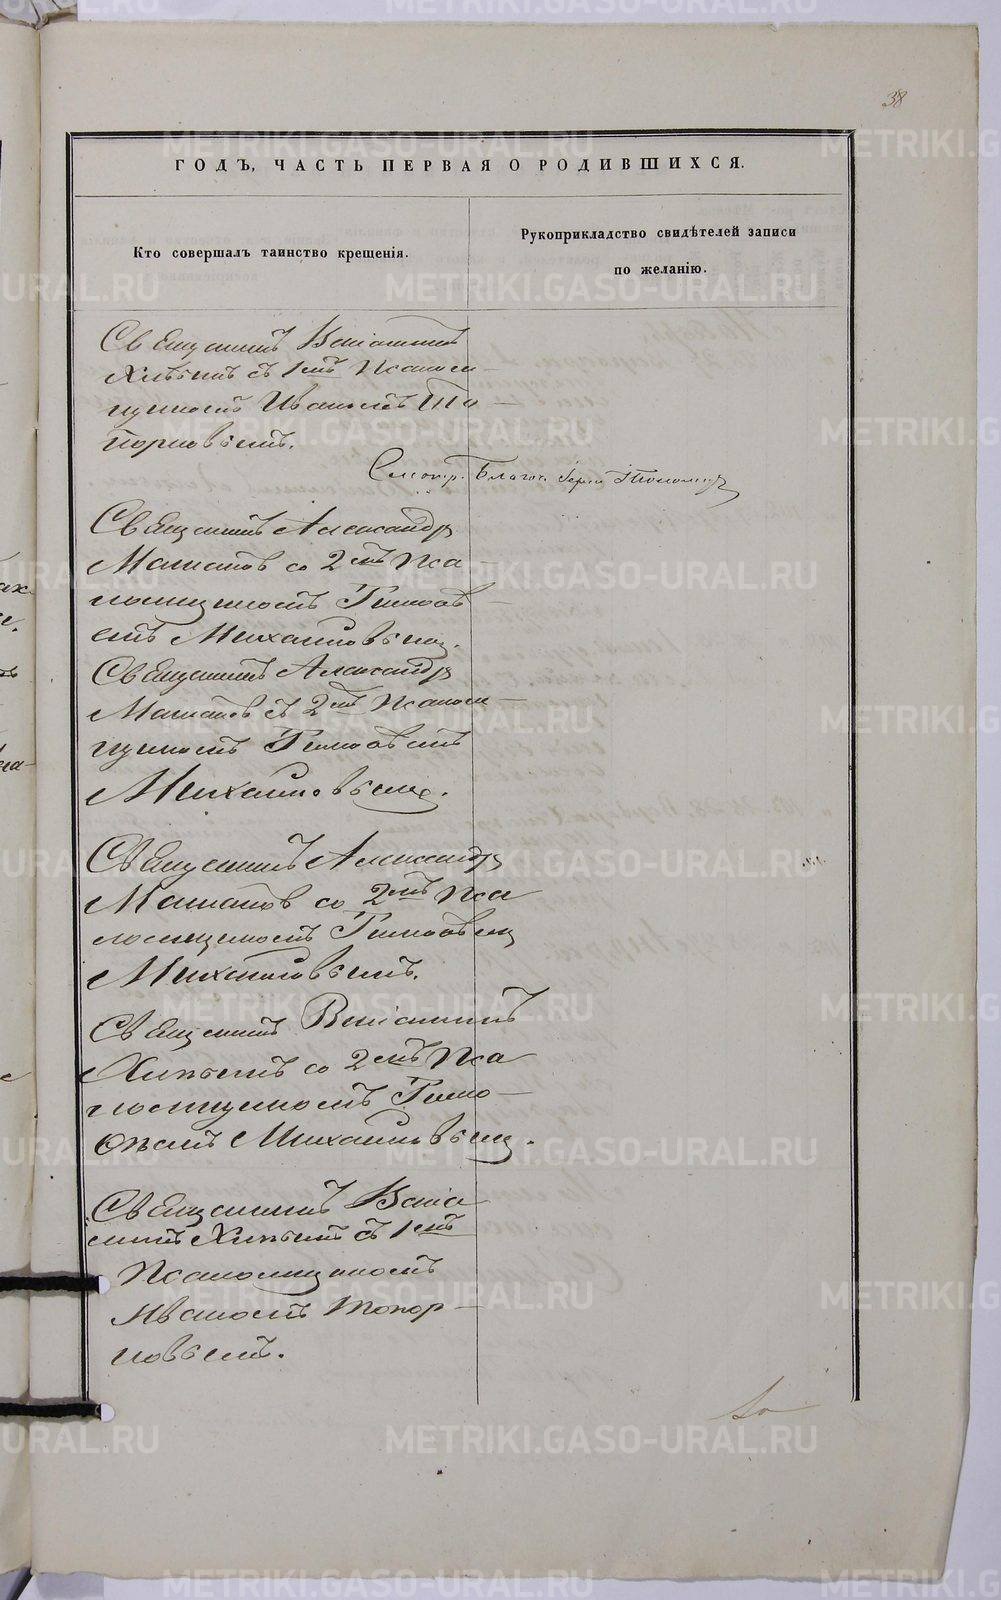 38
ГОДЪ, ЧАСТЬ ПЕРВАЯ О РОДИВШИХСЯ.
Кто совершалъ таинство крещенія.
Рукоприкладство свидѣтелей записи
по желанію.
Священникъ Веніаминъ
съ 1мъ Псалом-
щикомъ Иваномъ То-
порковымъ.
Смотр. Благоч. Іерей
Священникъ Александръ
со 2мъ Пса-
ломщикомъ Тимоѳе-
емъ Михайловымъ.
Священникъ Александръ
съ 2мъ Псалом-
щикомъ Тимоѳеемъ
Михайловымъ.
Священникъ Александръ
со 2мъ Пса
ломщикомъ Тимоѳеемъ
Михайловымъ.
Священникъ Веніаминъ
со 2мъ Пса
ломщикомъ Тимо-
ѳеемъ Михайловымъ.
Священникъ Веніа
минъ съ 1мъ
Псаломщикомъ
Иваномъ Топор-
ковымъ.
METRIKI.GASO-URAL.RU